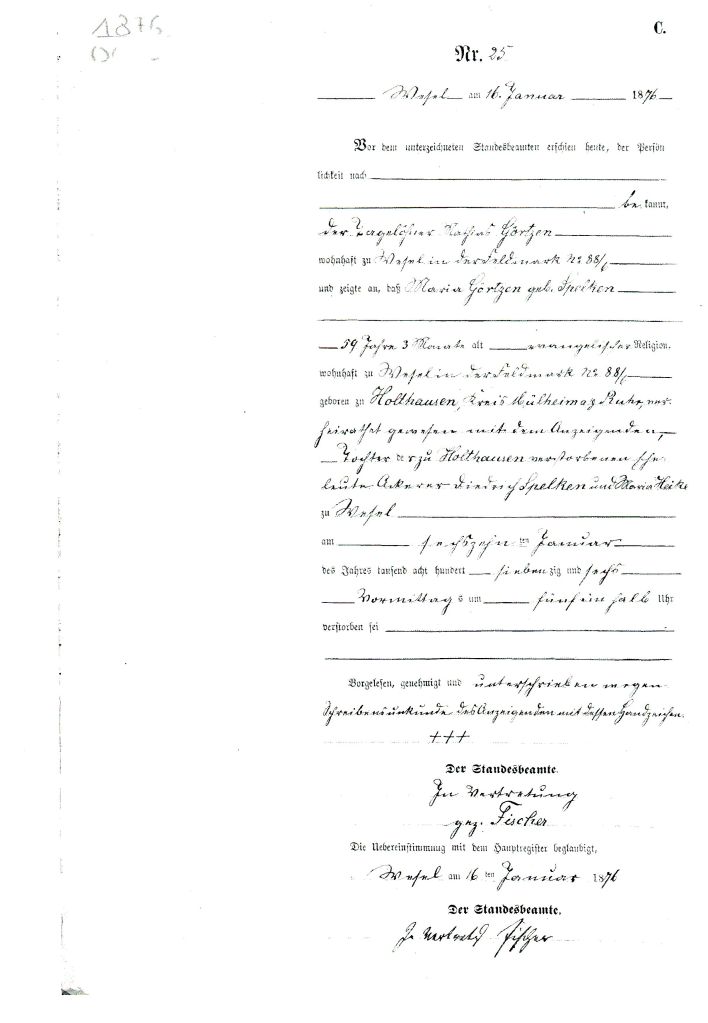 1876
C.
Nr. 25
Wesel am 16. Januar 1876
Vor dem unterzeichneten Standesbeamten erschien heute, der Persön
lichkeit nach
be kannt,
der Tagelöhner Mathias Görtzen
wohnhaft zu Wesel in der Feldmark No 88/
und zeigte an, daß Maria Görtzen geb. Spelken
59 Jahre 3 Monate alt evangelischer Religion,
wohnhaft zu Wesel in der Feldmark No 88/
geboren zu Holthausen, Kreis Mülheim a/ Ruhr, ver
heirathet gewesen mit dem Anzeigenden,
Tochter der zu Holthausen verstorbenen Ehe
leute Ackerer Diedrich Spelken und Maria
zu Wesel
am sechszehn ten Januar
des Jahres tausend acht hundert sieben zig und sechs
Vormittag s um fünf ein halb Uhr
verstorben sei
Vorgelesen, genehmigt und unterschrieben wegen
Schreibensunkunde des Anzeigenden mit dessen Handzeichen.
+++
Der Standesbeamte.
In Vertretung
gez. Fischer
Die Uebereinstimmung mit dem Hauptregister beglaubigt,
Wesel am 16 ten Januar 1876
Der Standesbeamte.
In Fischer